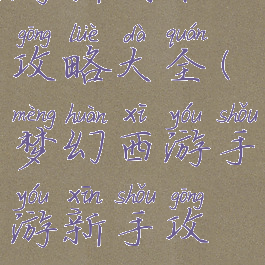 gōng lüè dà quán
攻略大全(
mèng huàn xī yóu shǒu
梦幻西游手
yóu xīn shǒu gōng
游新手攻